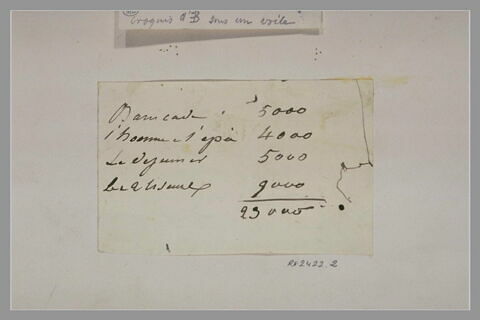 Croquis d'B sous un voile
Baricade 5000
l'homme à l'épée 4000
Le dejeuner 5000
les 2 9000
23000
RF 2422.2